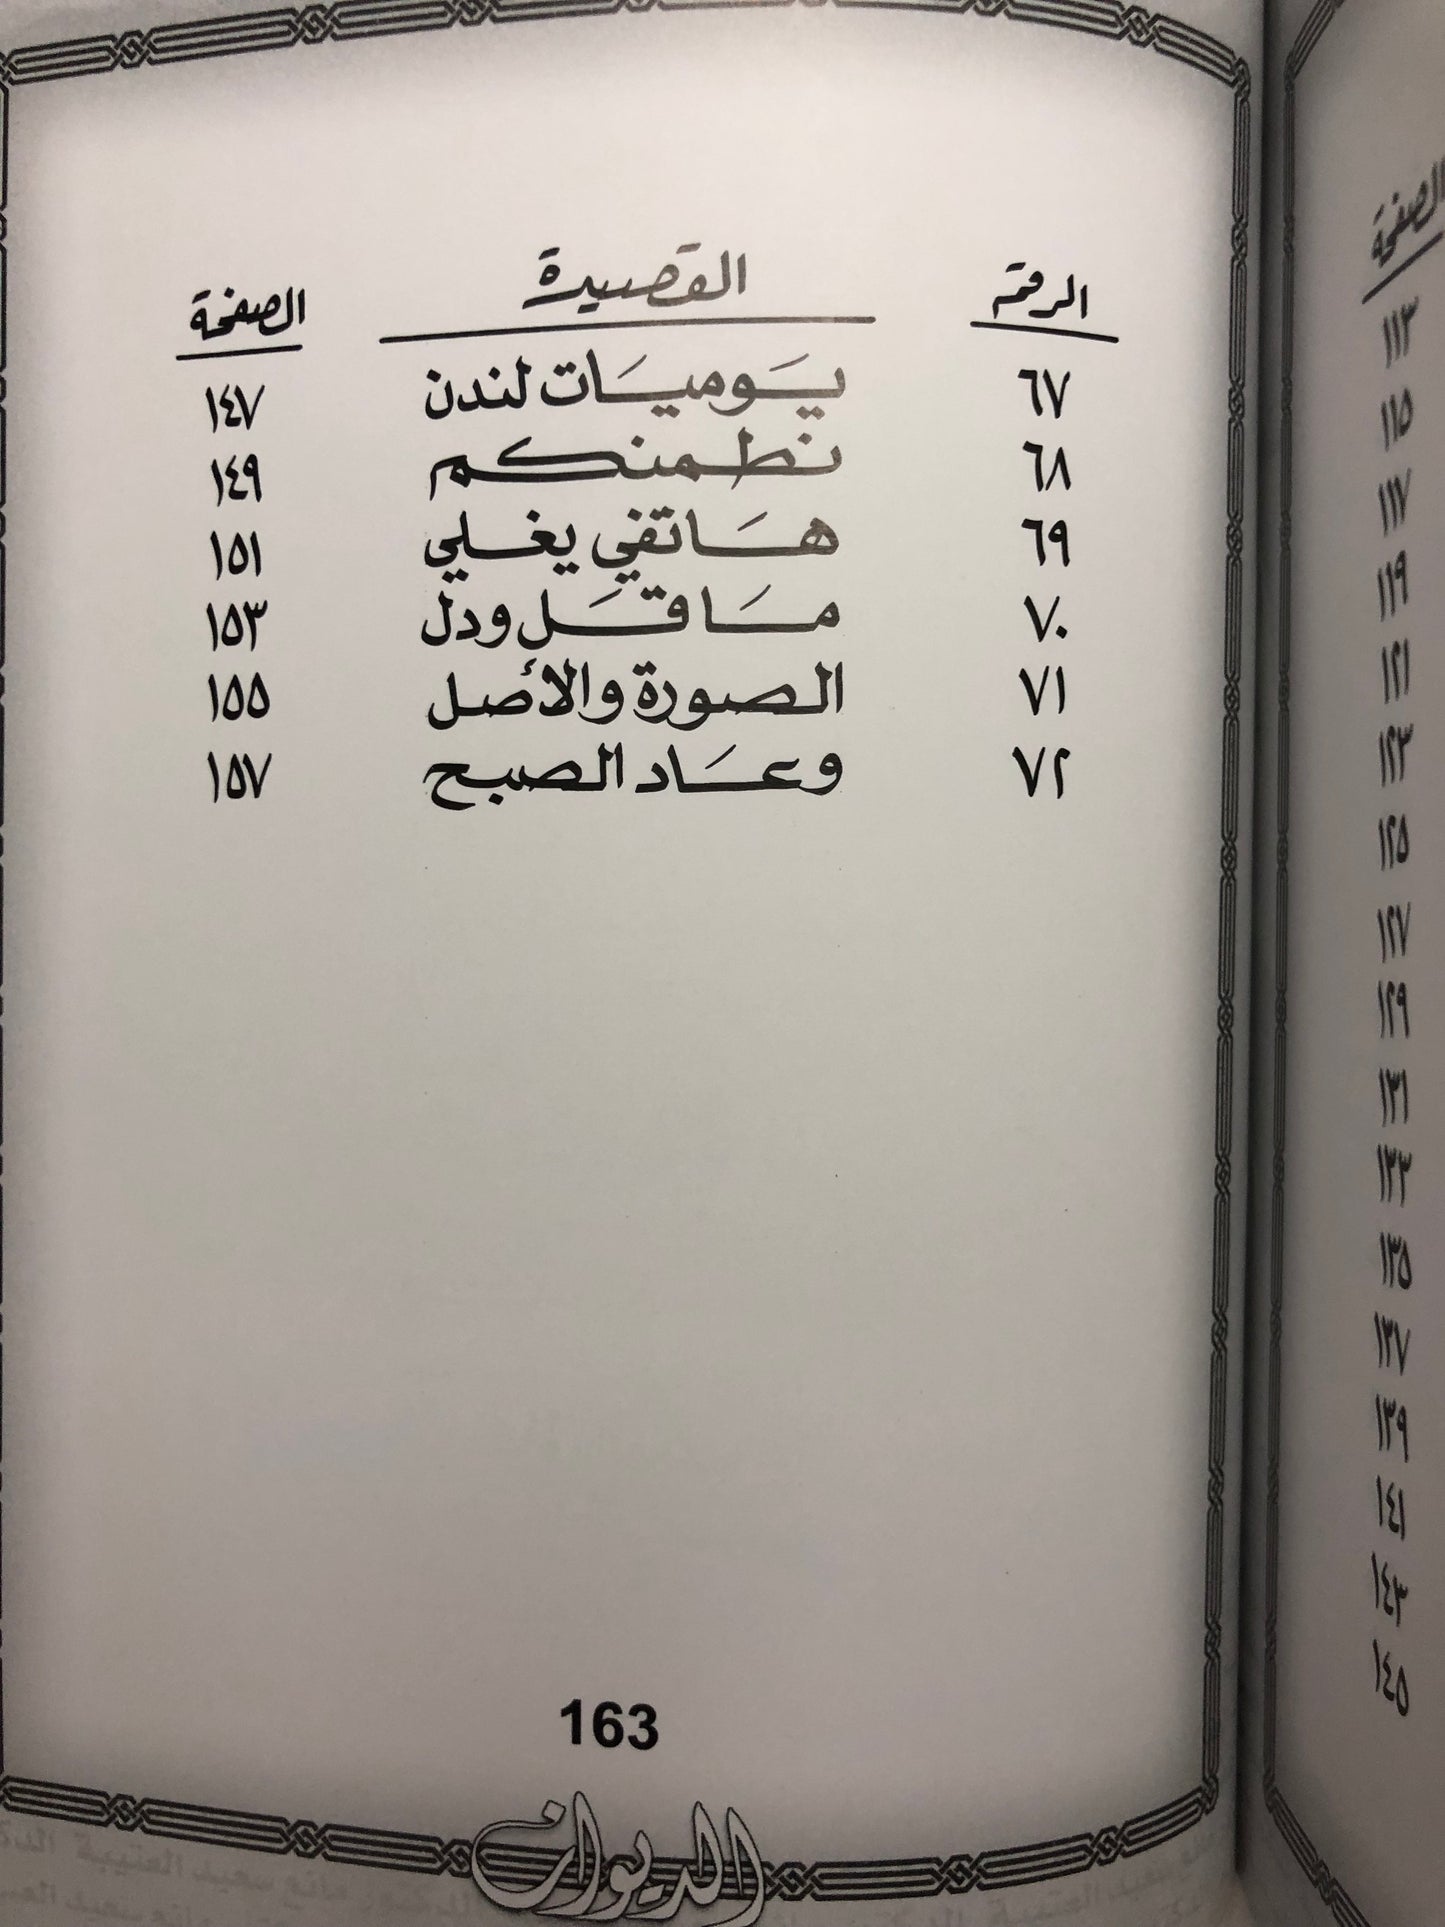 الرقم القصيدة الصفحة
٦٧ يوميات لندن ١٤٧
٦٨ نطمنكم ١٤٩
٦٩ هاتفي يغلي ١٥١
٧٠ مَا قَل ودل ١٥٣
٧١ الصورة والأصل ١٥٥
٧٢ وعَاد الصبح ١٥٧
163
الديوان
الصفحة
١١٣
١١٥
١١٧
١١٩
١٢١
١٢٣
١٢٥
١٢٧
١٢٩
١٣١
١٣٣
١٣٥
١٣٧
١٣٩
١٤١
١٤٣
١٤٥